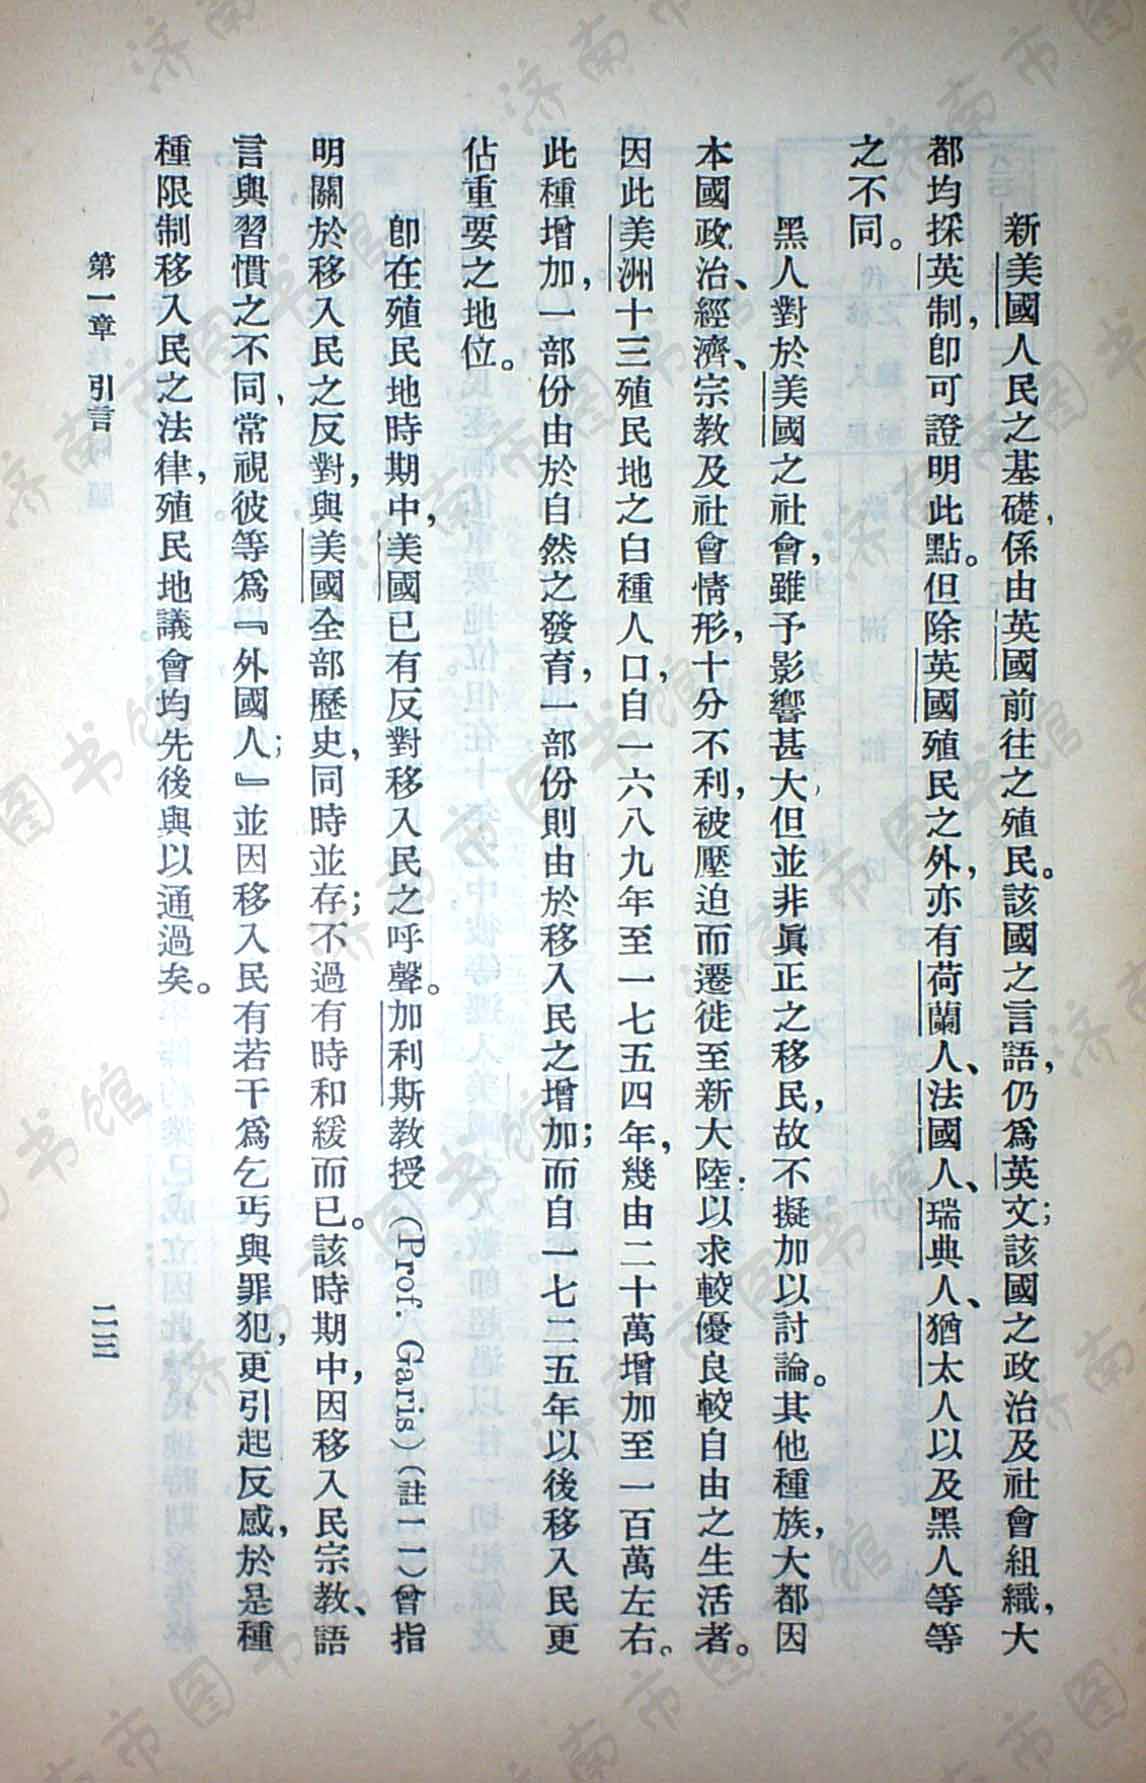 新美國人民之基礎，係由英國前往之殖民。該國之言語，仍爲英文；該國之政治及社會組織，大
都均採英制，卽可證明此點。但除英國殖民之外，亦有荷蘭人、法國人、瑞典人、猶太人以及黑人等等
之不同。
黑人對於美國之社會，雖予影響甚大，但並非眞正之移民，故不擬加以討論。其他種族，大都因
本國政治、經濟、宗教及社會情形，十分不利，被壓迫而遷徙至新大陸，以求較優良較自由之生活者。
因此美洲十三殖民地之白種人口，自一六八九年至一七五四年，幾由二十萬增加至一百萬左右。
此種增加，一部份由於自然之發育，一部份則由於移入民之增加；而自一七二五年以後移入民更
佔重要之地位。
卽在殖民地時期中，美國已有反對移入民之呼聲。加利斯教授（Prof. Garis）（註一一）曾指
明關於移入民之反對，與美國全部歷史，同時並存；不過有時和緩而已。該時期中，因移入民宗教、語
言與習慣之不同，常視彼等爲『外國人；』並因移入民有若干爲乞丐與罪犯，更引起反感，於是種
種限制移入民之法律，殖民地議會均先後與以通過矣。
第一章 引言
二三
济南市图书馆